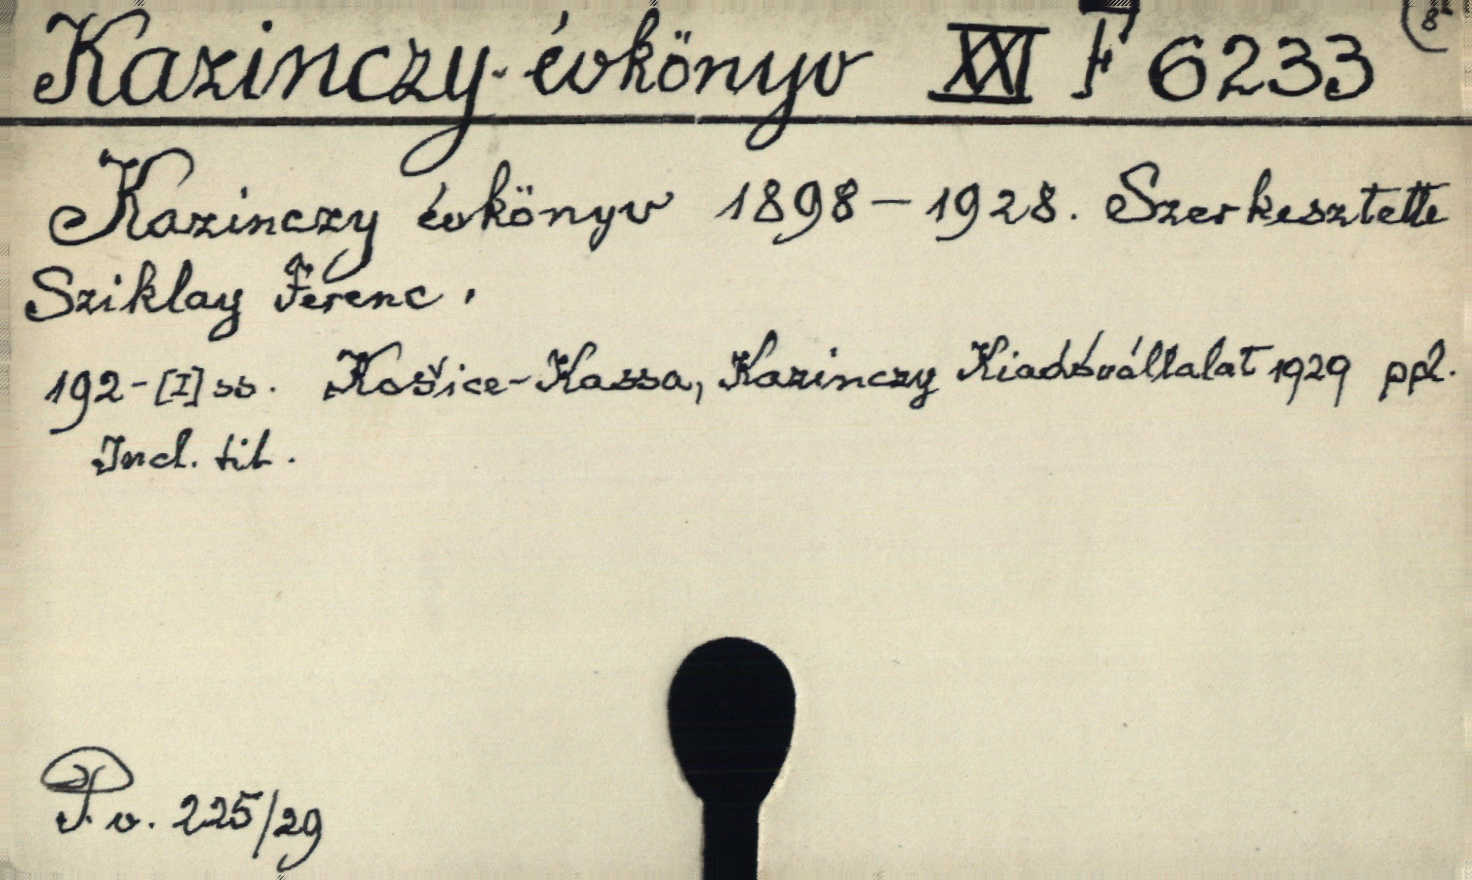 Kazinczy-évkönyv XXI F 6233 8°
Kazinczy évkönyv 1898–1928. Szerkesztette
Sziklay Ferenc.
192-[I] ss. Košice-Kassa, Kazinczy Kiadóvállalat 1929 ppl.
Incl. tit.
P. v. 225/29